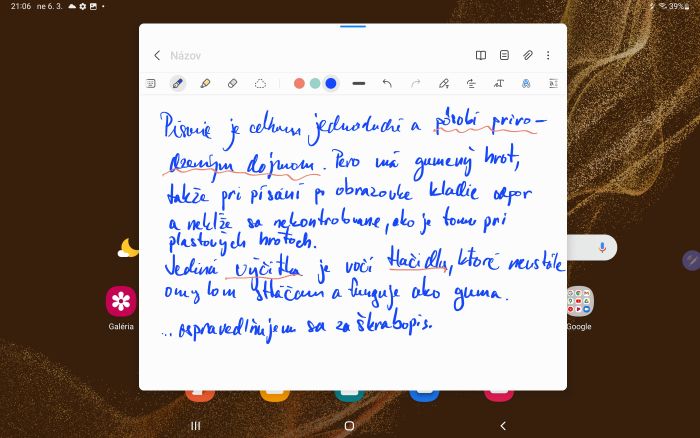 21:06 ne 6. 3.
39%
Názov
Písanie je celkom jednoduché a pôsobí priro-
dzeným dojmom. Pero má gumený hrot,
takže pri písaní po obrazovke kladie odpor
a nekĺže sa nekontrolovane, ako je tomu pri
plastových hrotoch.
Jediná výčitka je voči tlačidlu, ktoré neustále
omylom stláčam a funguje ako guma.
... ospravedlňujem sa za škrabopis.
Galéria
Google